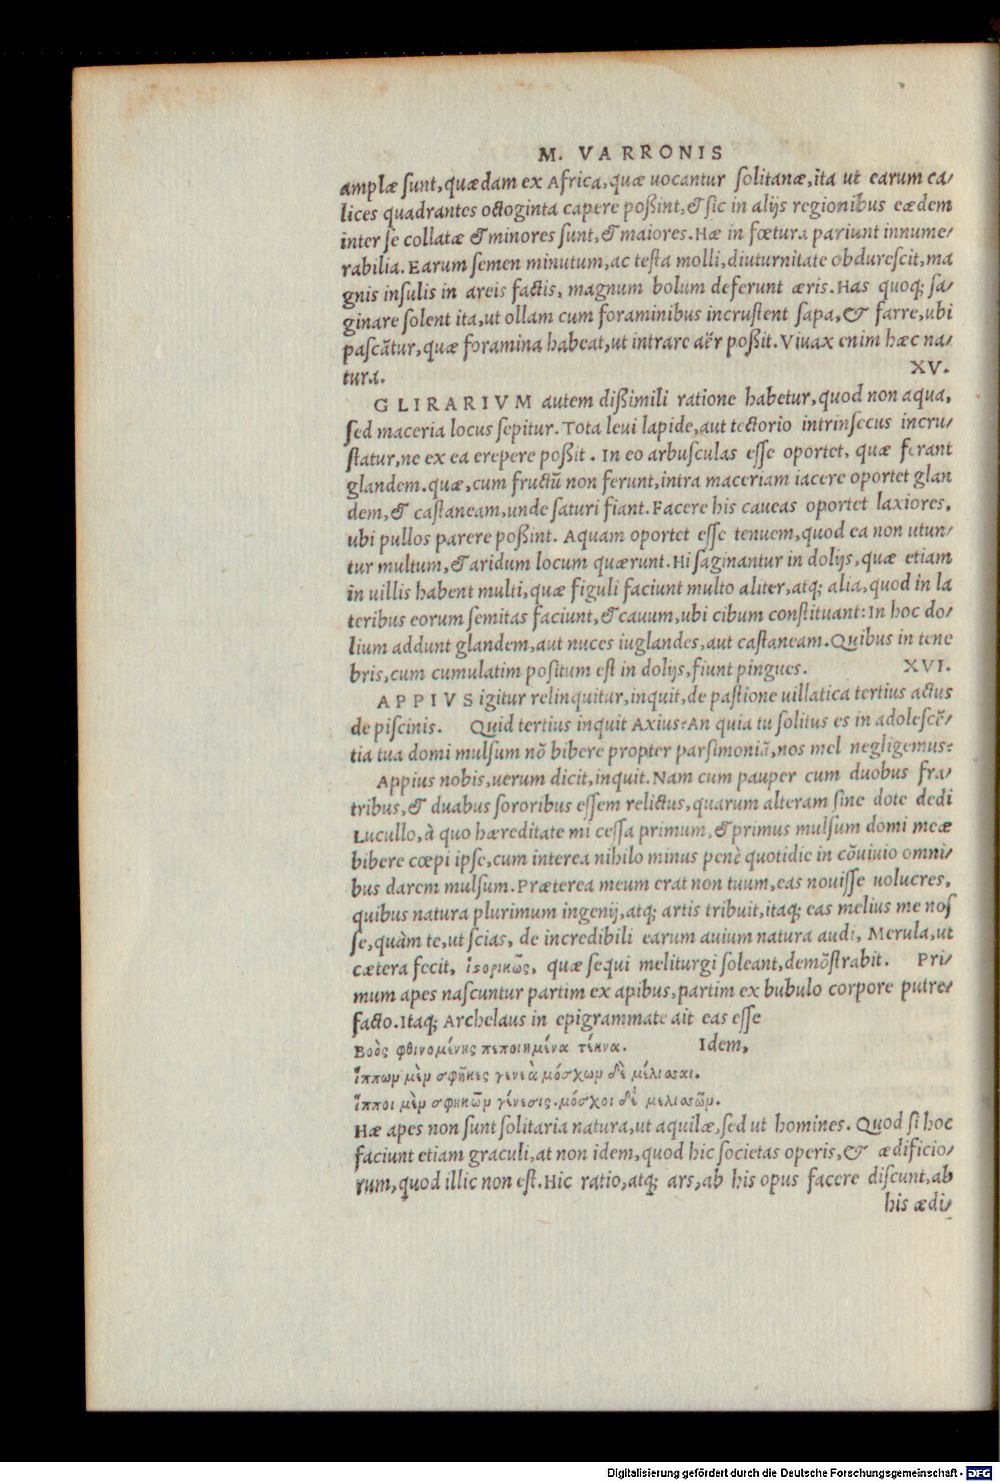 M. VARRONIS
amplæ sunt, quædam ex Africa, quæ uocantur solitanæ, ita ut earum ca/
lices quadrantes octoginta capere poßint, & sic in alijs regionibus eædem
inter se collatæ & minores sunt, & maiores. Hæ in fœtura pariunt innume/
rabilia. Earum semen minutum, ac testa molli, diuturnitate obdurescit, ma
gnis insulis in areis factis, magnum bolum deferunt æris. Has quoq; sa/
ginare solent ita, ut ollam cum foraminibus incrustent sapa, & farre, ubi
pascātur, quæ foramina habeat, ut intrare aër poßit. Viuax enim hæc na/
tura. XV.
GLIRARIVM autem dißimili ratione habetur, quod non aqua,
sed maceria locus sepitur. Tota leui lapide, aut tectorio intrinsecus incru/
statur, ne ex ea erepere poßit. In eo arbusculas esse oportet, quæ ferant
glandem. quæ, cum fructū non ferunt, intra maceriam iacere oportet glan
dem, & castaneam, unde saturi fiant. Facere his caueas oportet laxiores,
ubi pullos parere poßint. Aquam oportet esse tenuem, quod ea non utun/
tur multum, & aridum locum quærunt. Hi saginantur in dolijs, quæ etiam
in uillis habent multi, quæ figuli faciunt multo aliter, atq; alia, quod in la
teribus eorum semitas faciunt, & cauum, ubi cibum constituant: In hoc do/
lium addunt glandem, aut nuces iuglandes, aut castaneam. Quibus in tene
bris, cum cumulatim positum est in dolijs, fiunt pingues. XVI.
APPIVS igitur relinquitur, inquit, de pastione uillatica tertius actus
de piscinis. Quid tertius inquit Axius? An quia tu solitus es in adolescē/
tia tua domi mulsum nō bibere propter parsimoniā, nos mel negligemus?
Appius nobis, uerum dicit, inquit. Nam cum pauper cum duobus fra/
tribus, & duabus sororibus essem relictus, quarum alteram sine dote dedi
Lucullo, à quo hæreditate mi cessa primum, & primus mulsum domi meæ
bibere cœpi ipse, cum interea nihilo minus penè quotidie in cōuiuio omni/
bus darem mulsum. Præterea meum erat non tuum, eas nouisse uolucres,
quibus natura plurimum ingenij, atq; artis tribuit, itaq; eas melius me nos
se, quàm te, ut scias, de incredibili earum auium natura audi, Merula, ut
cætera fecit, ἱστορικῶς, quæ sequi meliturgi soleant, demōstrabit. Pri/
mum apes nascuntur partim ex apibus, partim ex bubulo corpore putre/
facto. Itaq; Archelaus in epigrammate ait eas esse
Βοὸς φθινομένης πεποιημένα τέκνα. Idem,
ἵππων μὲν σφῆκες γενεὰ μόσχων δὲ μέλισσαι.
ἵπποι μὲν σφηκῶν γένεσις. μόσχοι δὲ μελισσῶν.
Hæ apes non sunt solitaria natura, ut aquilæ, sed ut homines. Quod si hoc
faciunt etiam graculi, at non idem, quod hic societas operis, & ædificio/
rum, quod illic non est. Hic ratio, atq; ars, ab his opus facere discunt, ab
his ædi/
Digitalisierung gefördert durch die Deutsche Forschungsgemeinschaft - DFG